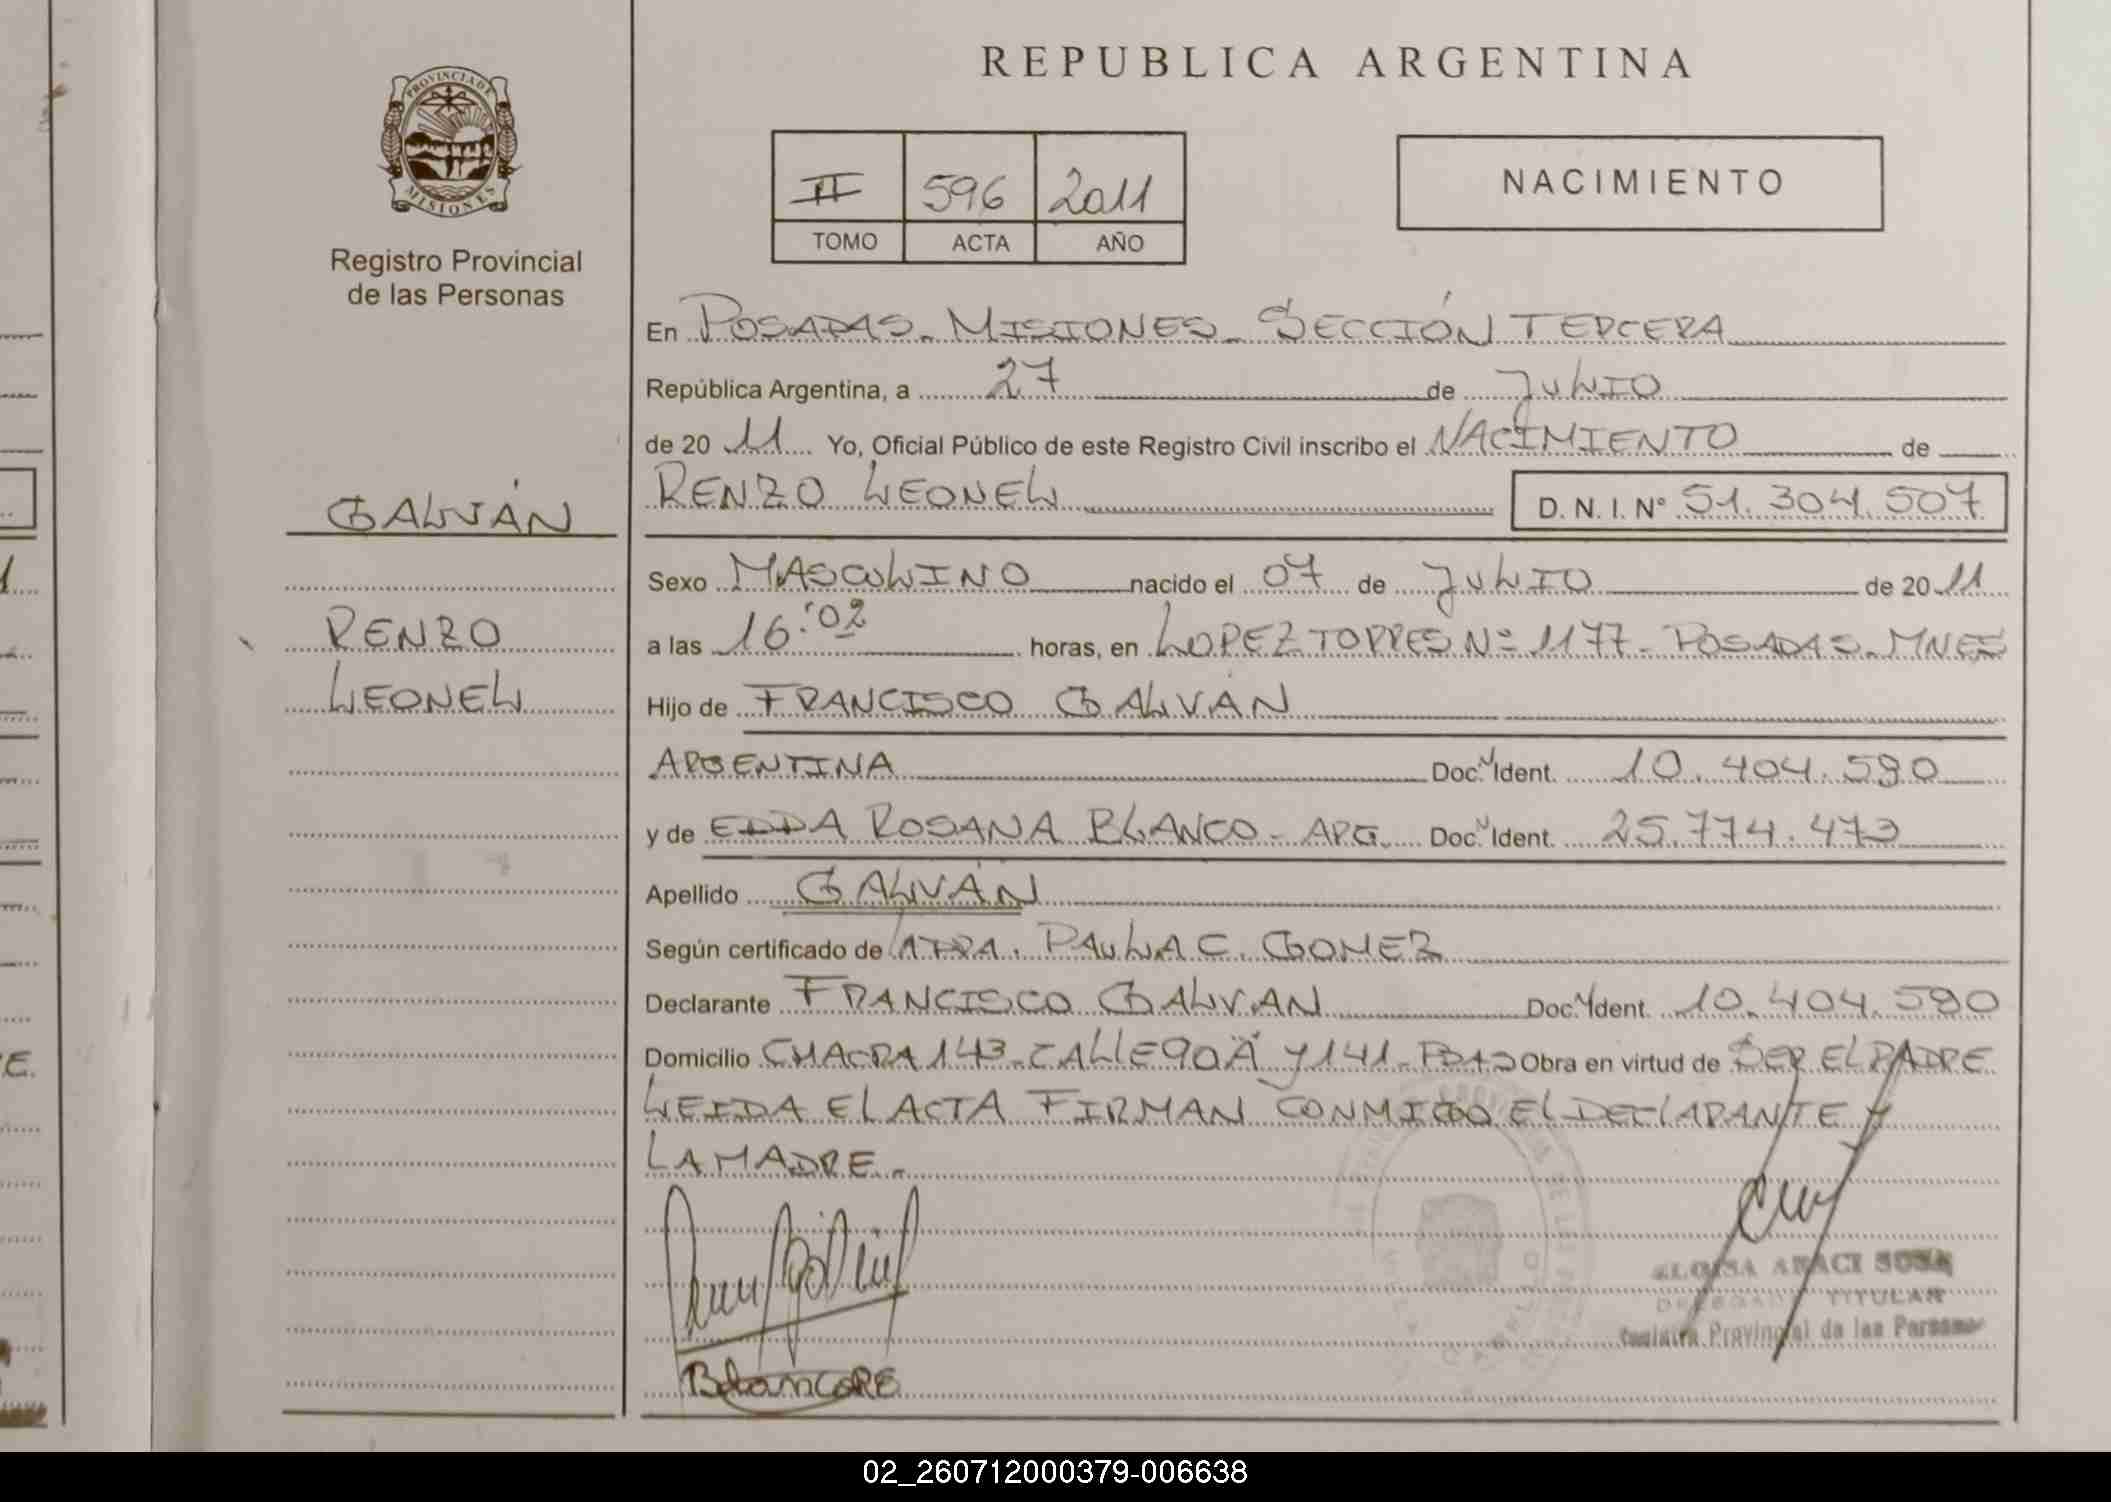 REPUBLICA ARGENTINA
PROVINCIA DE
MISIONES
Registro Provincial
de las Personas
II 596 2011
TOMO ACTA AÑO
NACIMIENTO
En POSADAS - MISIONES - SECCIÓN TERCERA
República Argentina, a 27 de JULIO
de 20 11 Yo, Oficial Público de este Registro Civil inscribo el NACIMIENTO de
RENZO LEONEL D. N. I. Nº 51.304.507
GALVÁN
RENZO
LEONEL
Sexo MASCULINO nacido el 07 de JULIO de 20 11
a las 16:02 horas, en LOPEZ TORRES Nº 1177 - POSADAS - MNES
Hijo de FRANCISCO GALVAN
ARGENTINA Doc. Ident. 10.404.590
y de EDDA ROSANA BLANCO - ARG. Doc. Ident. 25.774.473
Apellido GALVÁN
Según certificado de LTDA. PAULA C. GOMEZ
Declarante FRANCISCO GALVAN Doc. Ident. 10.404.590
Domicilio CHACRA 143 - CALLE 90 "A" y 141 - Obra en virtud de SER EL PADRE
LEIDA EL ACTA FIRMAN CONMIGO EL DECLARANTE Y
LA MADRE.-
TITULAR
Provincial de las Personas
02_260712000379-006638